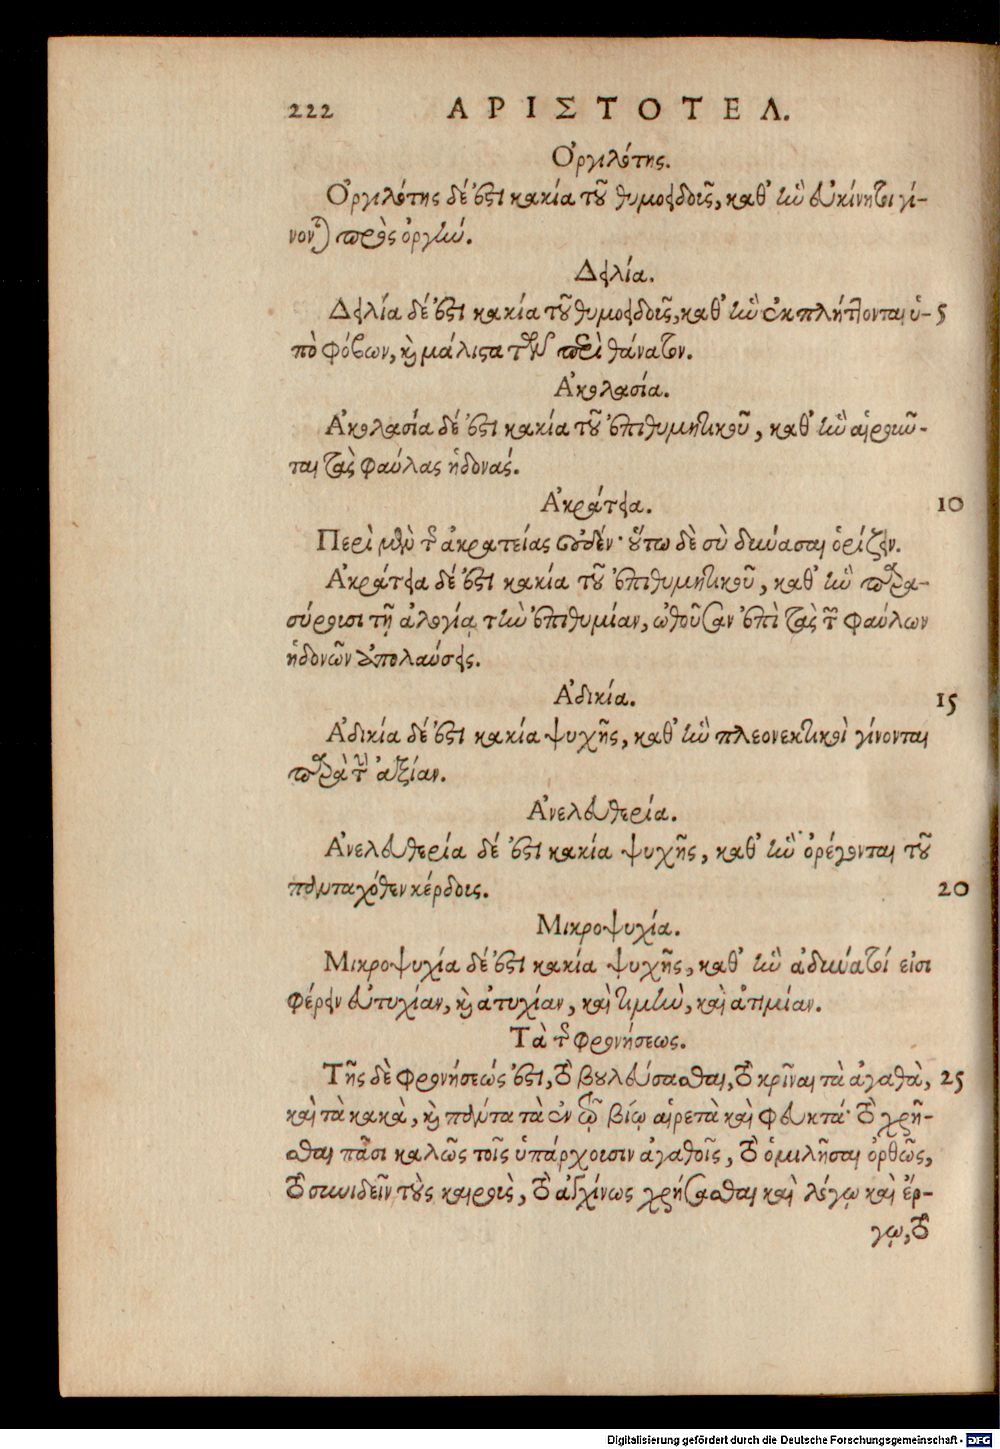 222 ΑΡΙΣΤΟΤΕΛ.
Ὀργιλότης.
Ὀργιλότης δέ ἐστι κακία τοῦ θυμοειδοῦς, καθ' ἣν εὐκίνητοι γί-
νονται πρὸς ὀργήν.
Δειλία.
Δειλία δέ ἐστι κακία τοῦ θυμοειδοῦς, καθ' ἣν ἐκπλήττονται ὑ- 5
πὸ φόβων, καὶ μάλιστα τῶν περὶ θάνατον.
Ἀκολασία.
Ἀκολασία δέ ἐστι κακία τοῦ ἐπιθυμητικοῦ, καθ' ἣν αἱροῦν-
ται τὰς φαύλας ἡδονάς.
Ἀκράτεια. 10
Περὶ μὲν τῆς ἀκρατείας οὐδέν· οὕτω δὲ σὺ δυνάσαι ὁρίζειν.
Ἀκράτεια δέ ἐστι κακία τοῦ ἐπιθυμητικοῦ, καθ' ἣν παρα-
σύρουσι τῇ ἀλογίᾳ τὴν ἐπιθυμίαν, ὠθοῦσαν ἐπὶ τὰς τῶν φαύλων
ἡδονῶν ἀπολαύσεις.
Ἀδικία. 15
Ἀδικία δέ ἐστι κακία ψυχῆς, καθ' ἣν πλεονεκτικοὶ γίνονται
παρὰ τὴν ἀξίαν.
Ἀνελευθερία.
Ἀνελευθερία δέ ἐστι κακία ψυχῆς, καθ' ἣν ὀρέγονται τοῦ
πανταχόθεν κέρδους. 20
Μικροψυχία.
Μικροψυχία δέ ἐστι κακία ψυχῆς, καθ' ἣν ἀδύνατοί εἰσι
φέρειν εὐτυχίαν, καὶ ἀτυχίαν, καὶ τιμὴν, καὶ ἀτιμίαν.
Τὰ τῆς φρονήσεως.
Τῆς δὲ φρονήσεώς ἐστι, τὸ βουλεύσασθαι, τὸ κρῖναι τὰ ἀγαθὰ, 25
καὶ τὰ κακὰ, καὶ πάντα τὰ ἐν τῷ βίῳ αἱρετὰ καὶ φευκτά· τὸ χρῆ-
σθαι πᾶσι καλῶς τοῖς ὑπάρχουσιν ἀγαθοῖς, τὸ ὁμιλῆσαι ὀρθῶς,
τὸ συνιδεῖν τοὺς καιροὺς, τὸ ἀγχίνως χρήσασθαι καὶ λόγῳ καὶ ἔρ-
γῳ, τὸ
Digitalisierung gefördert durch die Deutsche Forschungsgemeinschaft - DFG